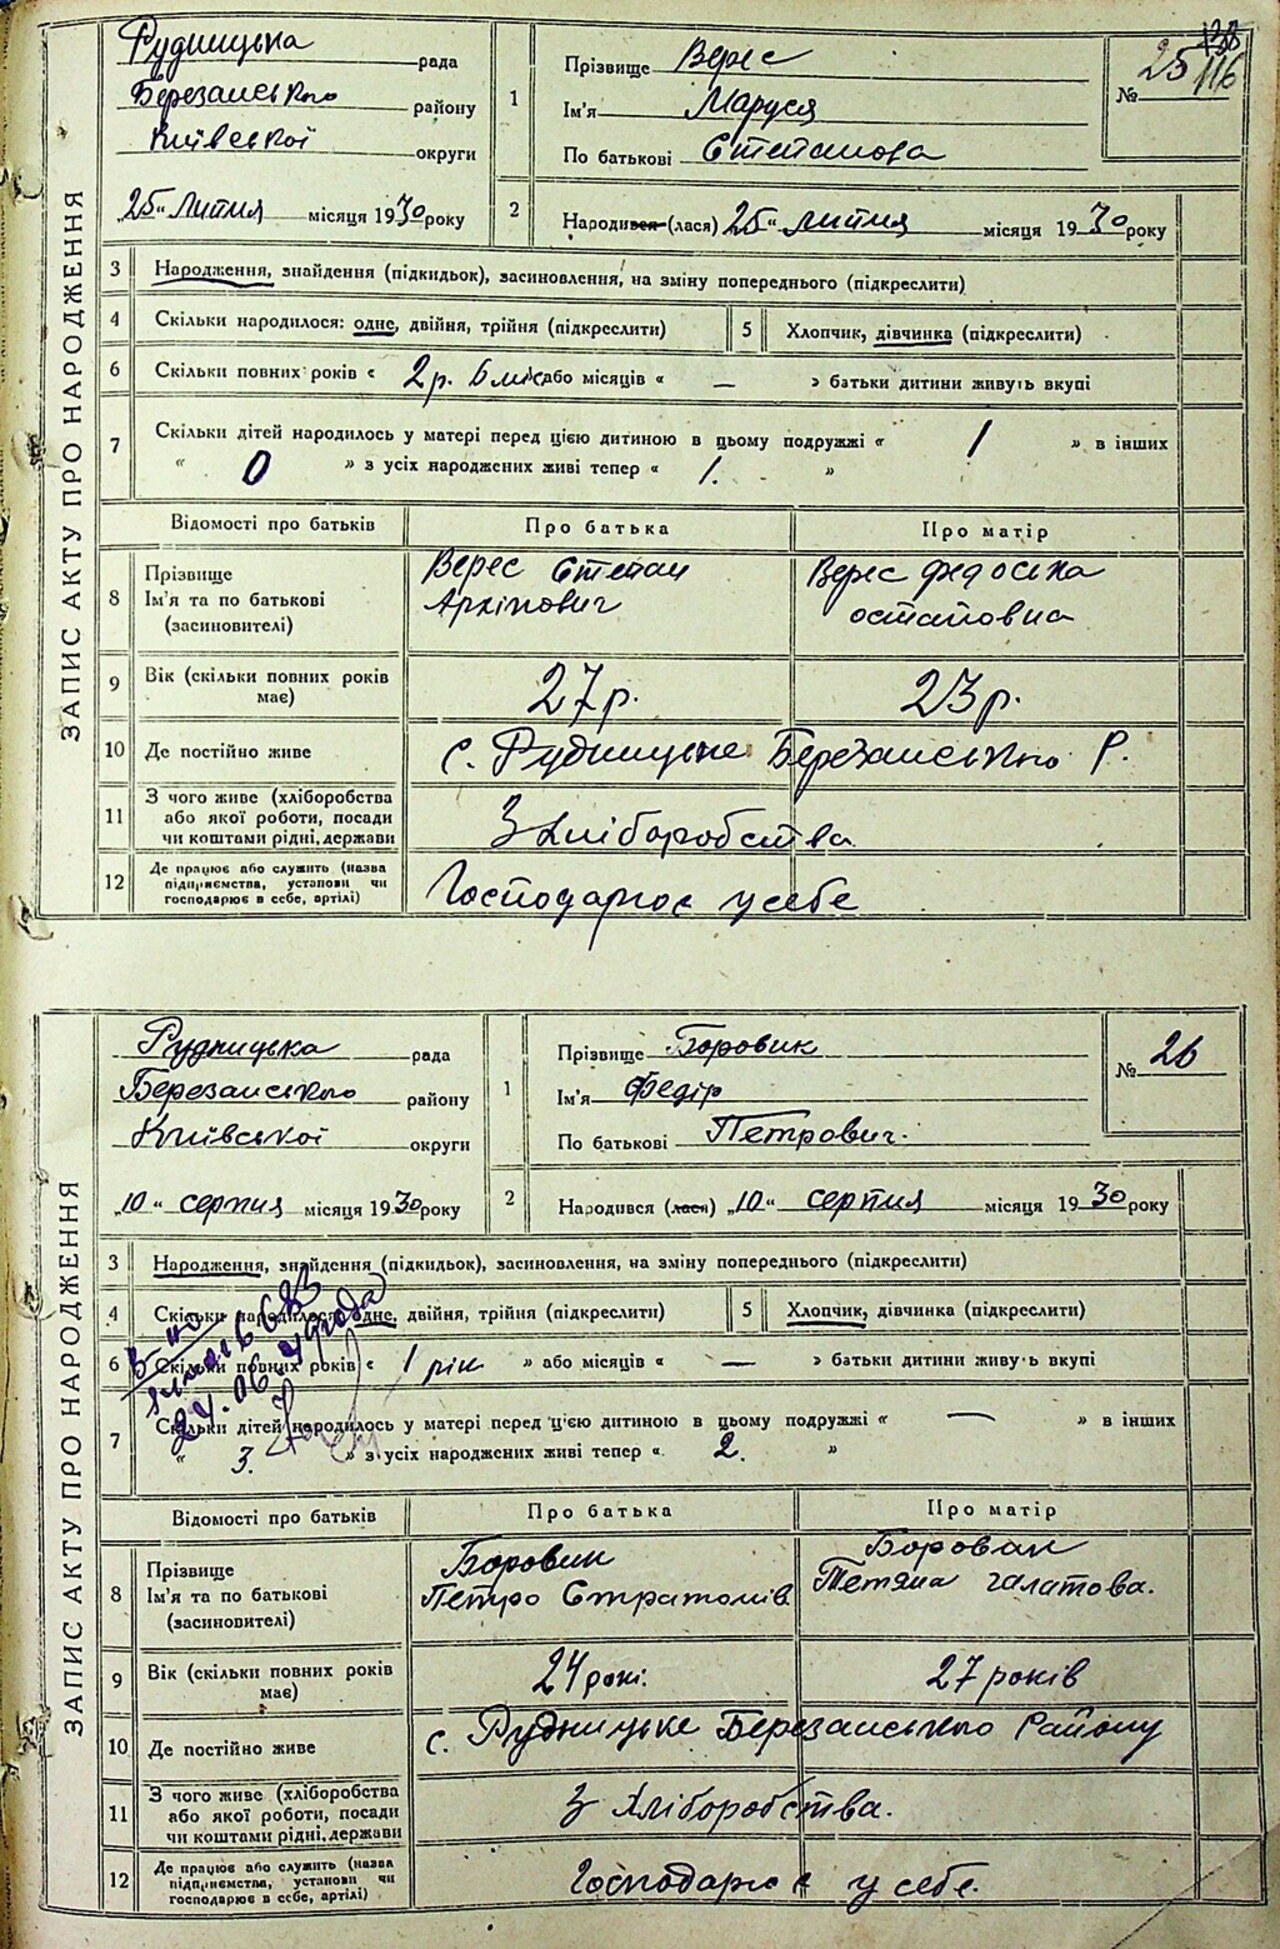 ЗАПИС АКТУ ПРО НАРОДЖЕННЯ
Рудницька рада
Березанського району
Київської округи
„25“ липня місяця 1930 року
1 Прізвище Верес
Ім'я Маруся
По батькові Степанова
№ 25
116
2 Народився (лася) „25“ липня місяця 1930 року
3 Народження, знайдення (підкидьок), засиновлення, на зміну попереднього (підкреслити)
4 Скільки народилося: одне, двійня, трійня (підкреслити) 5 Хлопчик, дівчинка (підкреслити)
6 Скільки повних років « 2 р. 6 міс або місяців « — » батьки дитини живуть вкупі
7 Скільки дітей народилось у матері перед цією дитиною в цьому подружжі « 1 » в інших
« 0 » з усіх народжених живі тепер « 1. »
Відомості про батьків Про батька Про матір
8 Прізвище Ім'я та по батькові (засиновителі)
Верес Степан
Архіпович
Верес Федоська
остаповна
9 Вік (скільки повних років має) 27 р. 23 р.
10 Де постійно живе с. Рудницьке Березанського Р.
11 З чого живе (хліборобства або якої роботи, посади чи коштами рідні, держави З хліборобства
12 Де працює або служить (назва підприємства, установи чи господарює в себе, артілі) Господарює у себе
ЗАПИС АКТУ ПРО НАРОДЖЕННЯ
Рудницька рада
Березанського району
Київської округи
„10“ серпня місяця 1930 року
1 Прізвище Боровик
Ім'я Федір
По батькові Петрович.
№ 26
2 Народився (лася) „10“ серпня місяця 1930 року
3 Народження, знайдення (підкидьок), засиновлення, на зміну попереднього (підкреслити)
4 Скільки народилося: одне, двійня, трійня (підкреслити) 5 Хлопчик, дівчинка (підкреслити)
6 Скільки повних років « 1 рік » або місяців « — » батьки дитини живуть вкупі
7 Скільки дітей народилось у матері перед цією дитиною в цьому подружжі « — » в інших
« 3. » з усіх народжених живі тепер « 2. »
Відомості про батьків Про батька Про матір
8 Прізвище Ім'я та по батькові (засиновителі)
Боровик
Петро Стратонів
Боровик
Тетяна Галатова.
9 Вік (скільки повних років має) 24 рокі. 27 років
10 Де постійно живе с. Рудницьке Березанського Району
11 З чого живе (хліборобства або якої роботи, посади чи коштами рідні, держави З Хліборобства.
12 Де працює або служить (назва підприємства, установи чи господарює в себе, артілі) Господарює у себе.